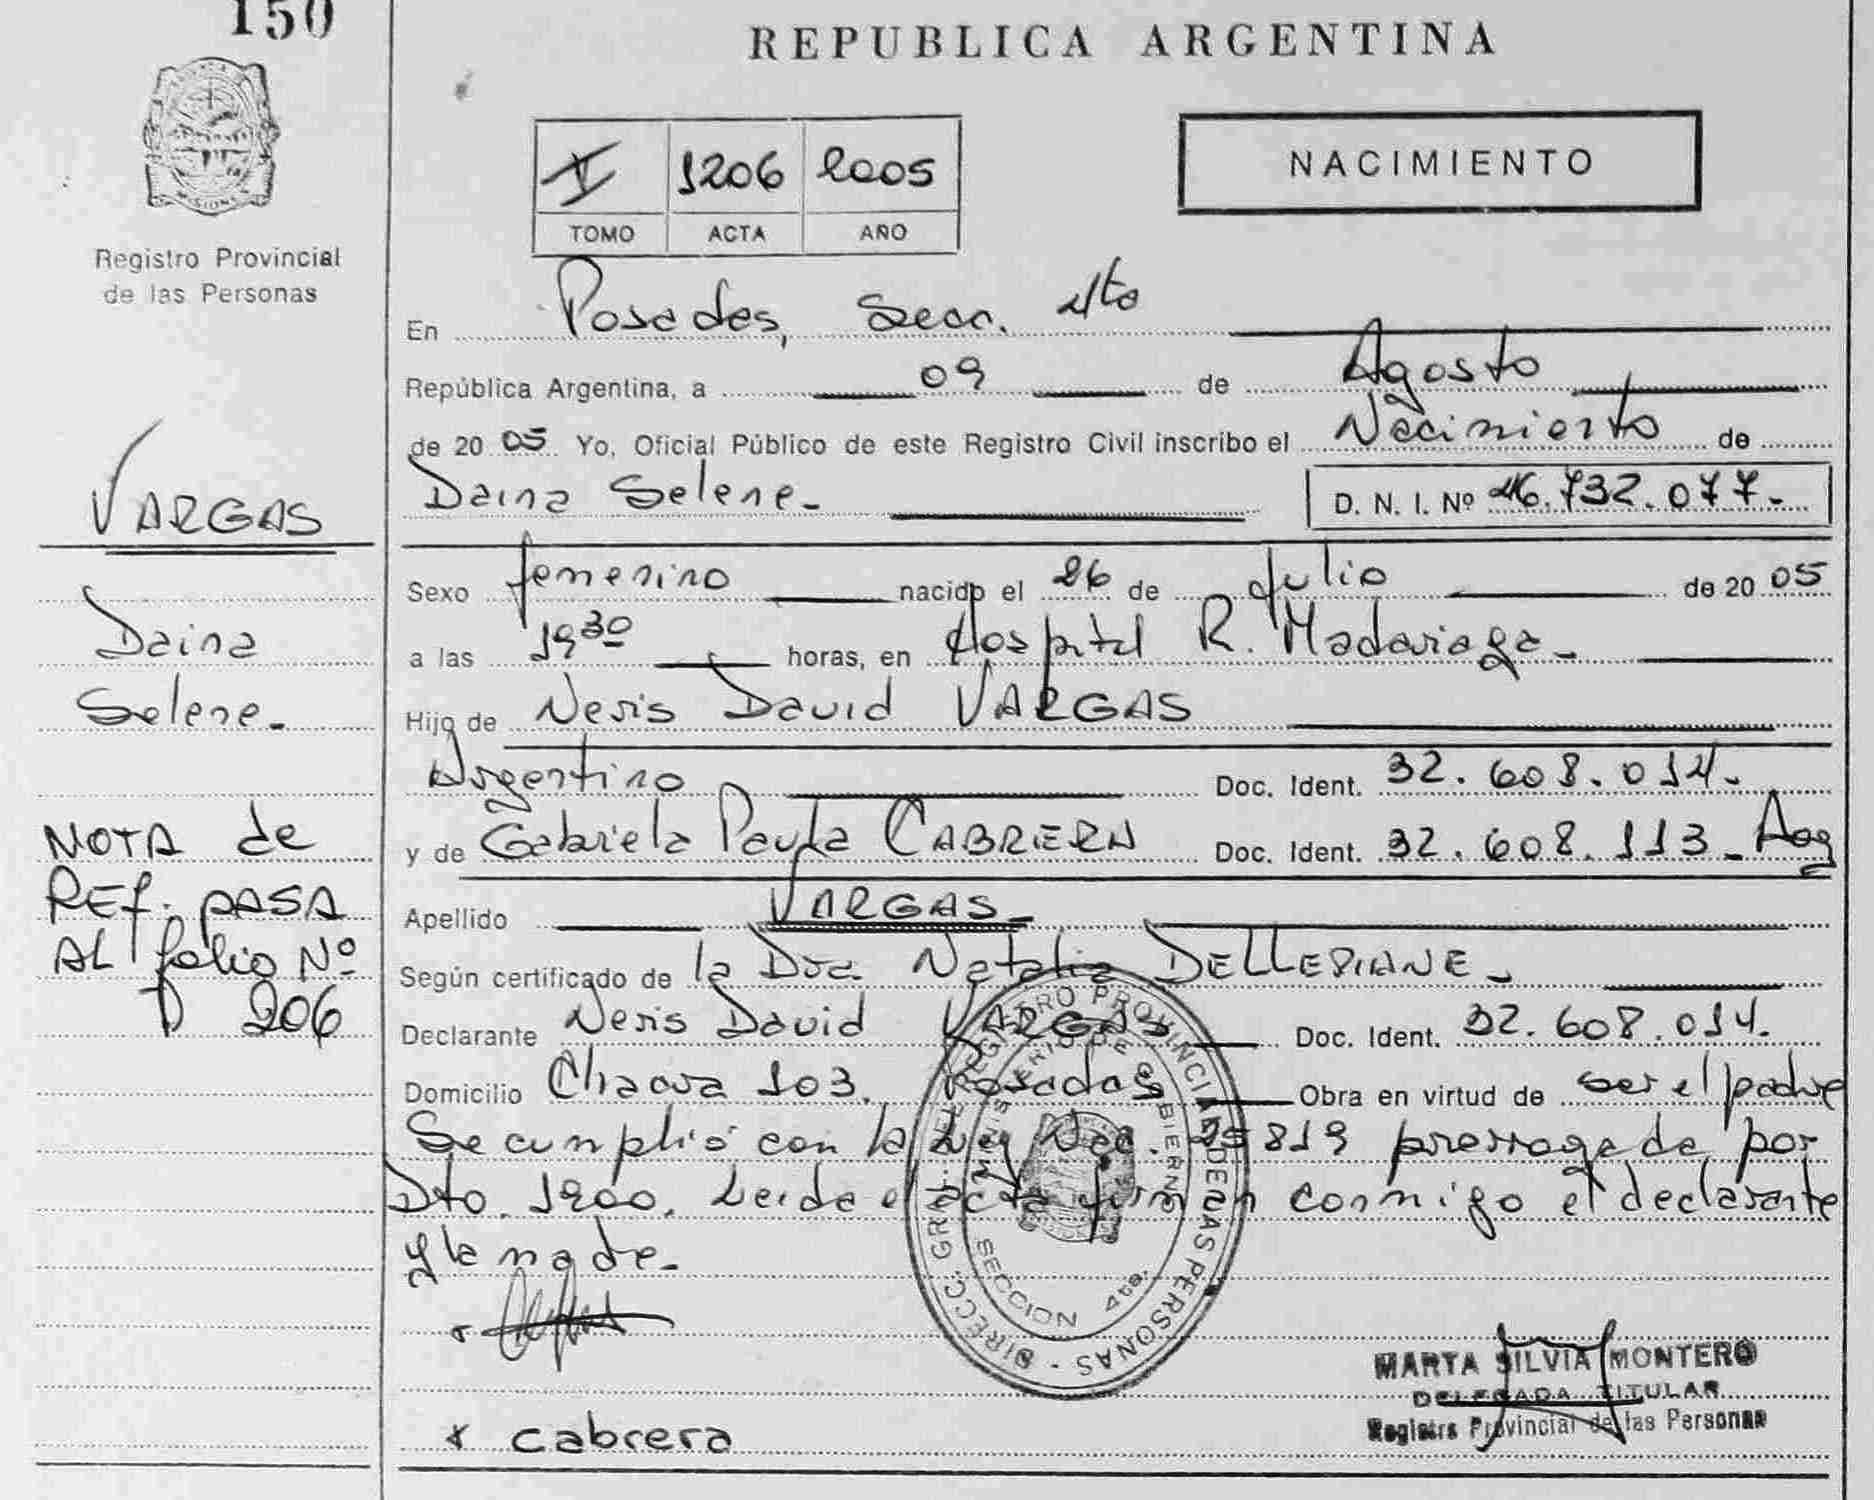 150
REPUBLICA ARGENTINA
MISIONES
Registro Provincial
de las Personas
1206 2005
TOMO ACTA AÑO
NACIMIENTO
En Posadas, Secc. 4to
República Argentina, a 09 de Agosto
de 2005 Yo, Oficial Público de este Registro Civil inscribo el Nacimiento de
Daina Selene- D. N. I. Nº 46.732.077-
VARGAS
Daina
Selene-
NOTA de
REf. PASA
AL folio Nº
206
Sexo femenino nacido el 26 de Julio de 2005
a las 19 30 horas, en Hospital R. Madariaga-
Hijo de Neris David VARGAS
Argentino Doc. Ident. 32.608.014-
y de Gabriela Paula CABRERA Doc. Ident. 32.608.113- Arg
Apellido VARGAS-
Según certificado de la Dra. Natalia DELLEPIANE-
Declarante Neris David VARGAS Doc. Ident. 32.608.014.
Domicilio Chacra 103. Posadas Obra en virtud de ser el padre
Se cumplió con la Ley Nac. 25819 prorrogada por
Dto. 1900. Leida el acta firman conmigo el declarante
y la madre-
DIRECC. GRAL. DEL REGISTRO PROVINCIAL DE LAS PERSONAS
MINISTERIO DE GOBIERNO
SECCION 4ta.
x cabrera
MARTA SILVIA MONTERO
DELEGADA TITULAR
Registro Provincial de las Personas